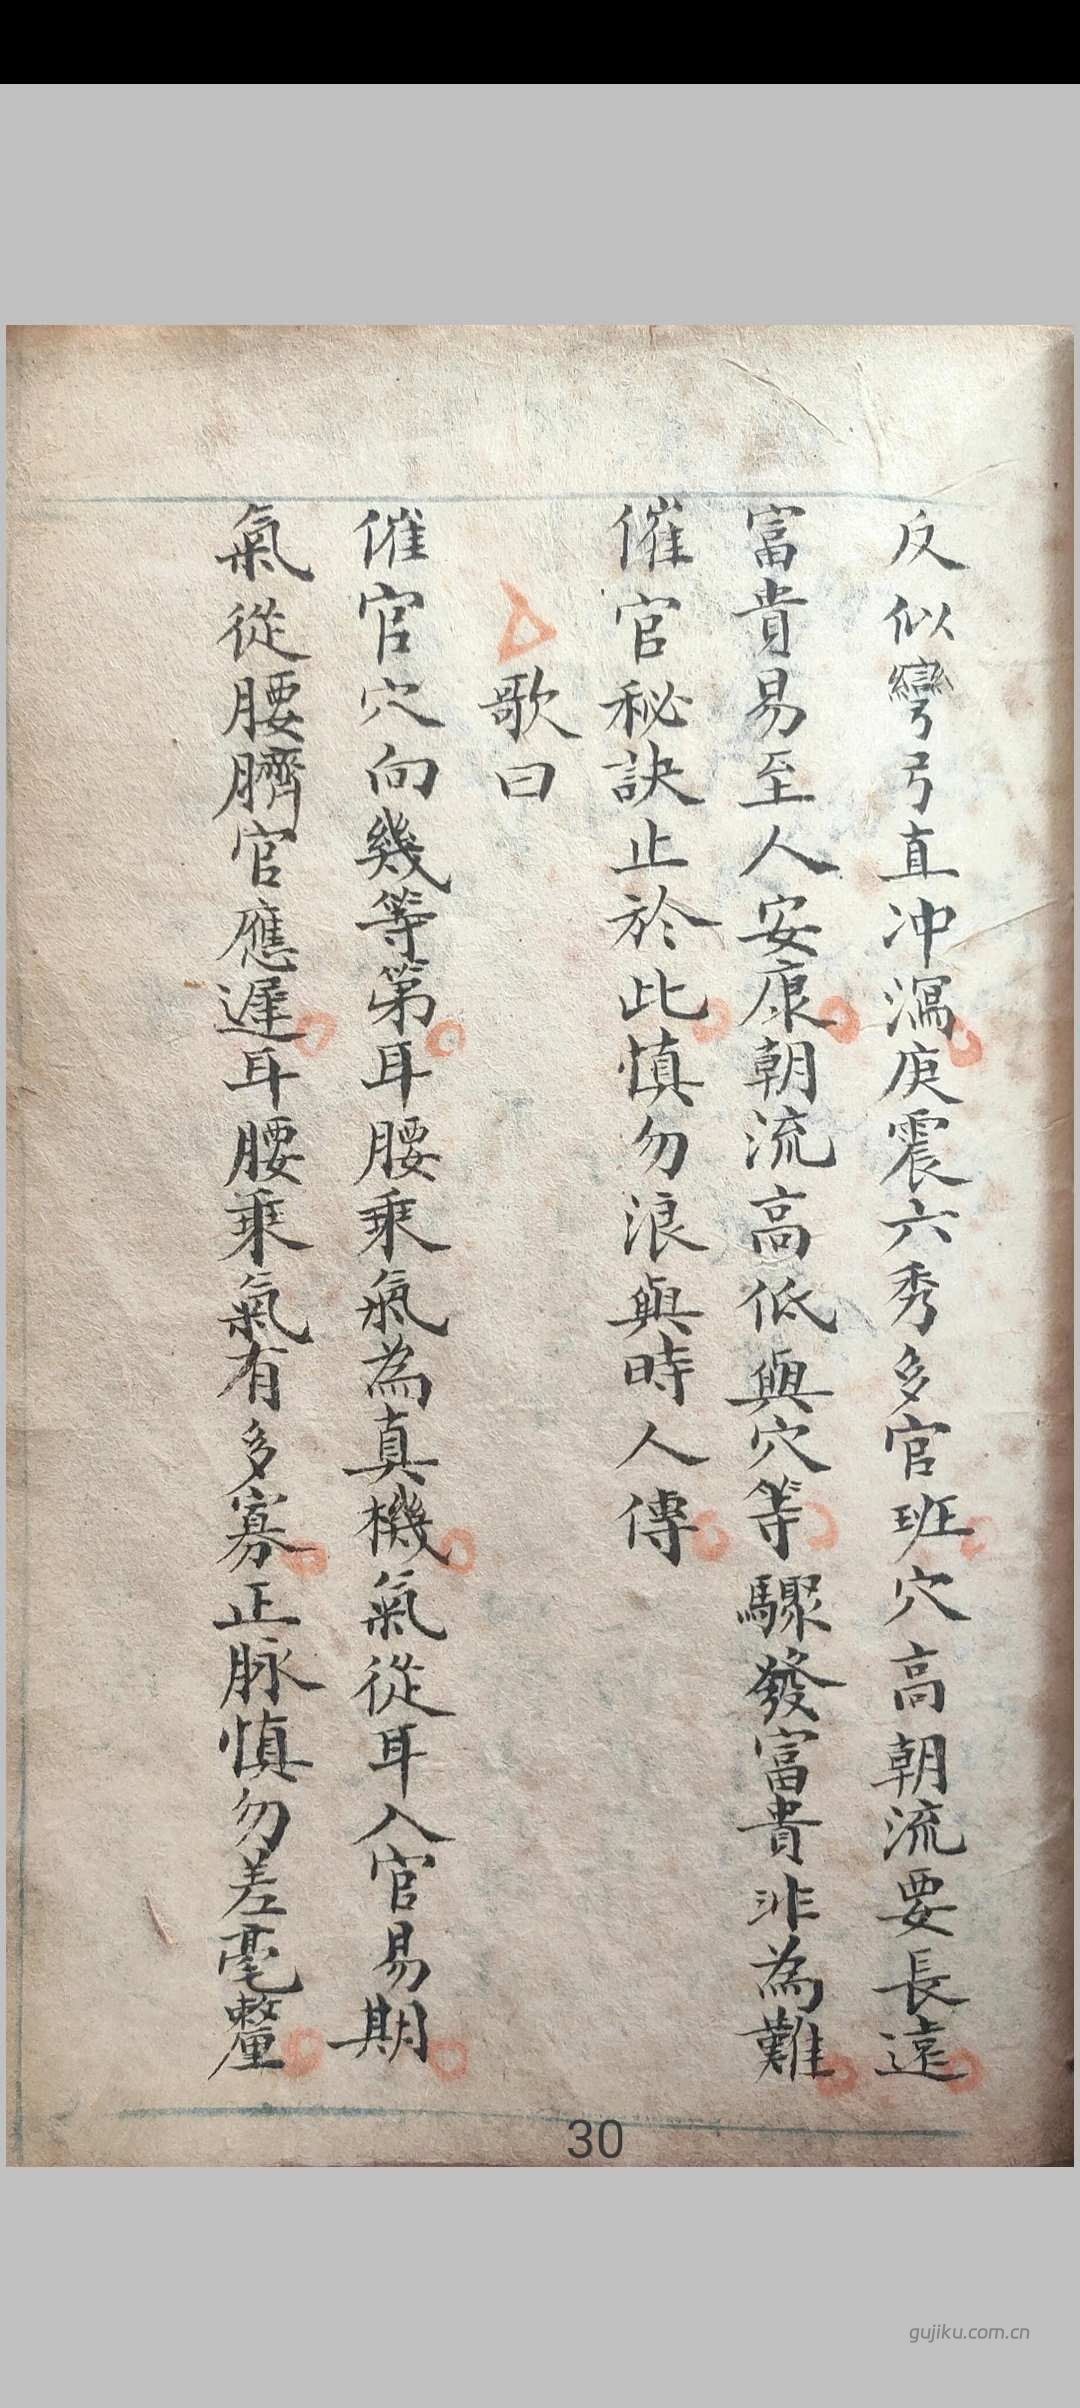 反似彎弓直冲瀉庚震六秀多官班穴高朝流要長遠
富貴易至人安康朝流高低與穴等驟發富貴非為難
催官秘訣止於此慎勿浪與時人傳
歌曰
催官穴向幾等第耳腰乘氣為真機氣從耳入官易期
氣從腰臍官應遲耳腰乘氣有多寡正脉慎勿差毫釐
30
gujiku.com.cn